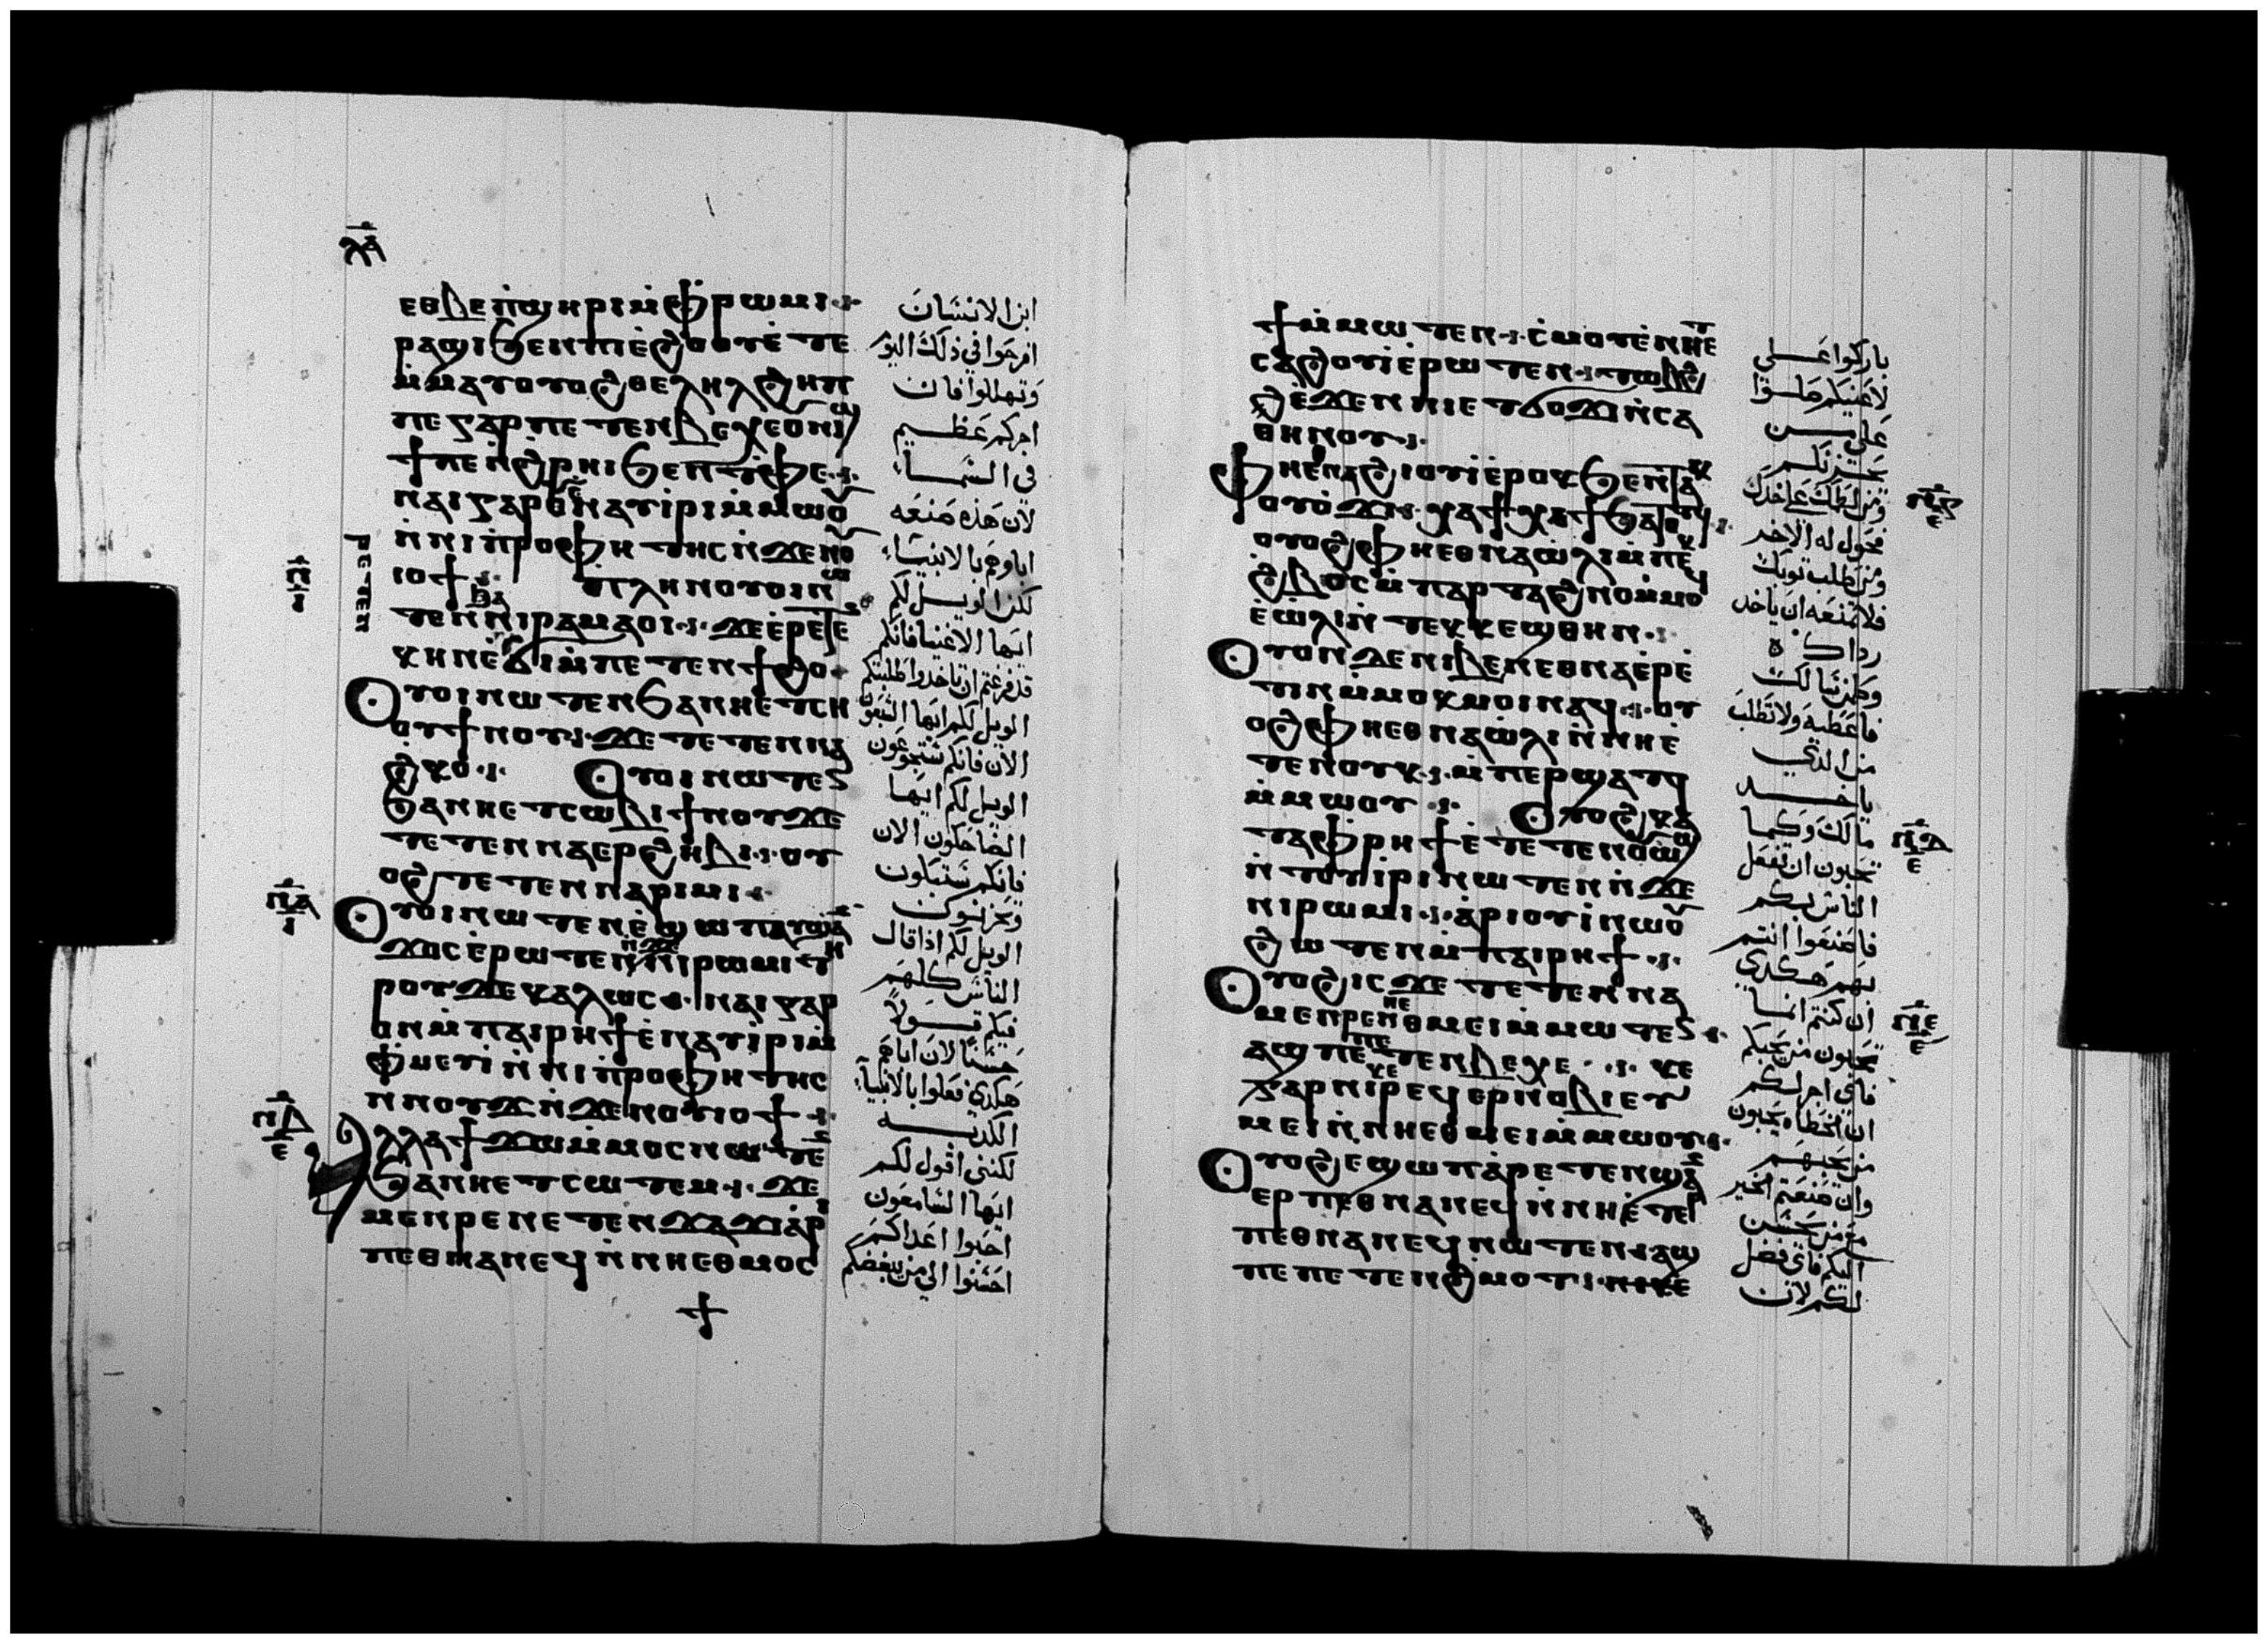 ⲗⲁ
ⲉⲑⲃⲉ ⲡϣⲏⲣⲓ ⲙ̀ⲫⲣⲱⲙⲓ
ⲣⲁϣⲓ ϧⲉⲛ ⲡⲓⲉ̀ϩⲟⲟⲩ ⲉ̀ⲧⲉ
ⲙ̀ⲙⲁⲩ ⲟⲩⲟϩ ⲑⲉⲗⲏⲗ ϩⲏⲡ
ⲡⲉ ⲅⲁⲣ ⲡⲉⲧⲉⲛⲃⲉⲭⲉ ⲟⲛⲓϣ
ϯ ⲡⲉ ⲛ̀ϩⲣⲏⲓ ϧⲉⲛ ⲧⲫⲉ
ⲛⲁⲓ ⲅⲁⲣ ⲟⲛ ⲛⲁⲩⲓⲣⲓ ⲙ̀ⲙⲱⲟⲩ
ⲛ̀ⲛⲓⲡⲣⲟⲫⲏⲧⲏⲥ ⲛ̀ϫⲉ ⲛⲟⲩ
ⲓⲟϯ ⲡⲗⲏⲛ ⲟⲩⲟⲓ ⲛⲱ
ⲧⲉⲛ ⲛⲓⲣⲁⲙⲁⲟⲓ ϫⲉ ⲉ̀ⲣⲉⲧⲉ
ⲣⲉⲧⲉⲛ
ⲕⲏⲛ ⲉ̀ϭⲓ ⲙ̀ⲡⲉⲧⲉⲛϯϩⲟ
ⲟⲩⲟⲓ ⲛⲱⲧⲉⲛ ϧⲁ ⲛⲏⲉⲧⲥⲏ
ⲟⲩ ϯⲛⲟⲩ ϫⲉ ⲧⲉⲧⲉⲛⲛⲁ
ϩⲕⲟ ⲟⲩⲟⲓ ⲛⲱⲧⲉⲛ
ϧⲁ ⲛⲏⲉⲧⲥⲱⲃⲓ ϯⲛⲟⲩ ϫⲉ
ⲧⲉⲧⲉⲛⲛⲁⲉⲣϩⲏⲃⲓ ⲟⲩ
ⲟϩ ⲧⲉⲧⲉⲛⲛⲁⲣⲓⲙⲓ
ⲟⲩⲟⲓ ⲛⲱⲧⲉⲛ ⲉ̀ϣⲱⲡ ⲁⲩϣⲁ
ϫⲟⲥ ⲉ̀ⲣⲱⲧⲉⲛ ⲛ̀ϫⲉ ⲛⲓⲣⲱⲙⲓ ⲧⲏ
ⲣⲟⲩ ϫⲉ ⲕⲁⲗⲱⲥ ⲛⲁⲓ ⲅⲁⲣ
ⲟⲛ ⲙ̀ⲡⲁⲓⲣⲏϯ ⲉ̀ⲛⲁⲩⲓⲣⲓ ⲙ̀
ⲙⲟⲥ ⲛ̀ⲛⲓⲡⲣⲟⲫⲏⲧⲏⲥ
ⲛⲛⲟⲩϫ ⲛ̀ϫⲉ ⲛⲟⲩⲓⲟϯ
ⲁⲗⲗⲁ ϯϫⲱ ⲙ̀ⲙⲟⲥ ⲛⲱⲧⲉⲛ
ϧⲁ ⲛⲏⲉⲧⲥⲱⲧⲉⲙ ϫⲉ
ⲙⲉⲛⲣⲉ ⲛⲉⲧⲉⲛϫⲁϫⲓ ⲁⲣⲓ
ⲡⲉⲑⲛⲁⲛⲉϥ ⲛ̀ⲛⲏⲉⲑⲙⲟⲥ
ابن الانسان
افرحوا في ذلك اليوم
وتهللوا فان
اجركم عظيم
في السماء
لان هذه صنعه
اباوهم بالانبياء
لكن الويل لكم
ايها الاغنيا فانكم
قد فرغتم ان تاخدوا طلبتكم
الويل لكم ايها الشبعون
الان فانكم ستجوعون
الويل لكم ايها
الضاحكون الان
فانكم ستبكون
وتحزنون
الويل لكم اذا قال
الناس كلهم
فيكم قولاً
حسنا لان اباهم
هكدي فعلوا بالانبياء
الكدبه
لكنني اقول لكم
ايها السامعون
احبوا اعداكم
احسنوا الي من يبغضكم
ϯ ⲙ̀ⲙⲱⲧⲉⲛ ⲥ̀ⲙⲟⲩ ⲉ̀ⲛⲏⲉⲧ
ⲥⲁϩⲟⲩⲓ ⲉ̀ⲣⲱⲧⲉⲛ ⲧⲱⲃϩ
ⲉ̀ϫⲉⲛ ⲛⲓⲉⲧϭⲟϫⲓ ⲛ̀ⲥⲁ
ⲑⲏⲛⲟⲩ
ⲫⲏⲉⲑⲛⲁϩⲓⲟⲩⲓ ⲉ̀ⲣⲟⲕ ϧⲉⲛ ⲧⲁⲓ
ⲟⲩⲟ̀ϫⲓ ⲭⲁ ϯⲭⲉϯ ϧⲁⲧⲟⲧϥ
ⲟⲩⲟϩ ⲫⲏⲉⲑⲛⲁⲱ̀ⲗⲓ ⲙ̀ⲡⲉⲕ
ϩⲃⲟⲥ ⲙ̀ⲡⲁⲣⲧⲁϩⲛⲟ ⲙ̀ⲙⲟϥ
ⲉ̀ⲱ̀ⲗⲓ ⲛ̀ⲧⲉⲕⲕⲉϣⲑⲏⲛ
ⲟⲩⲟⲛ ⲇⲉ ⲛⲓⲃⲉⲛ ⲉⲑⲛⲁⲉⲣⲉ̀
ⲧⲓⲛ ⲙ̀ⲙⲟⲕ ⲙⲟⲓ ⲛⲁϥ ⲟⲩ
ⲟϩ ⲫⲏⲉⲑⲛⲁⲱ̀ⲗⲓ ⲛ̀ⲛⲏⲉ̀
ⲧⲉⲛⲟⲩⲕ ⲙ̀ⲡⲉⲣϣⲁⲧϥ
ⲙ̀ⲙⲱⲟⲩ ⲟⲩⲟϩ ⲕⲁ
ⲧⲁ ⲫⲣⲏϯ ⲉ̀ⲧⲉⲧⲉⲛⲟⲩⲱϣ
ⲛ̀ⲧⲟⲩⲓⲣⲓ ⲛⲱⲧⲉⲛ ⲛ̀ϫⲉ
ⲛⲓⲣⲱⲙⲓ ⲁⲣⲓⲟⲩⲓ̀ ⲛⲱⲟⲩ
ϩⲱⲧⲉⲛ ⲙ̀ⲡⲁⲓⲣⲏϯ
ⲟⲩⲟϩ ⲓⲥϫⲉ ⲧⲉⲧⲉⲛⲛⲁ
ⲙⲉⲛⲣⲉ ⲛⲏⲉⲑⲙⲉⲓ ⲙ̀ⲙⲱⲧⲉⲛ
ⲁϣ ⲡⲉ ⲡⲉⲧⲉⲛⲃⲉⲭⲉ ⲕⲉ
ⲅⲁⲣ ⲛⲓⲕⲉⲣⲉϥⲉⲣⲛⲟⲃⲓ ⲉⲩ
ⲙⲉⲓ ⲛ̀ⲛⲏⲉⲑⲙⲉⲓ ⲙ̀ⲙⲱⲟⲩ
ⲟⲩⲟϩ ⲉϣⲱⲡ ⲁⲣⲉⲧⲉⲛϣⲁⲛ
ⲉⲣⲡⲉⲑⲛⲁⲛⲉϥ ⲛ̀ⲛⲏⲉ̀ⲧⲉⲣ
ⲡⲉⲑⲛⲁⲛⲉϥ ⲛⲱⲧⲉⲛ ⲁϣ
ⲡⲉ ⲡⲉⲧⲉⲛϩⲙⲟⲧ
باركوا على
لاعنيكم صلوا
على من
يحزنكم
ومن لطمك على خدك
فحول له الاخر
ومن طلب توبك
فلا تمنعه ان ياخد
رداك
وكل من سالك
فاعطيه ولا تطلب
من الذي
ياخد
مالك وكما
تحبون ان تفعل
الناس بكم
فاصنعوا انتم
بهم هكدي
ان كنتم انما
تحبون من يحبكم
فاي اجر لكم
ان الخطاه يحبون
من يحبهم
وان صنعتم الخير
مع من يحسن
اليكم فاي فضل
لكم لان